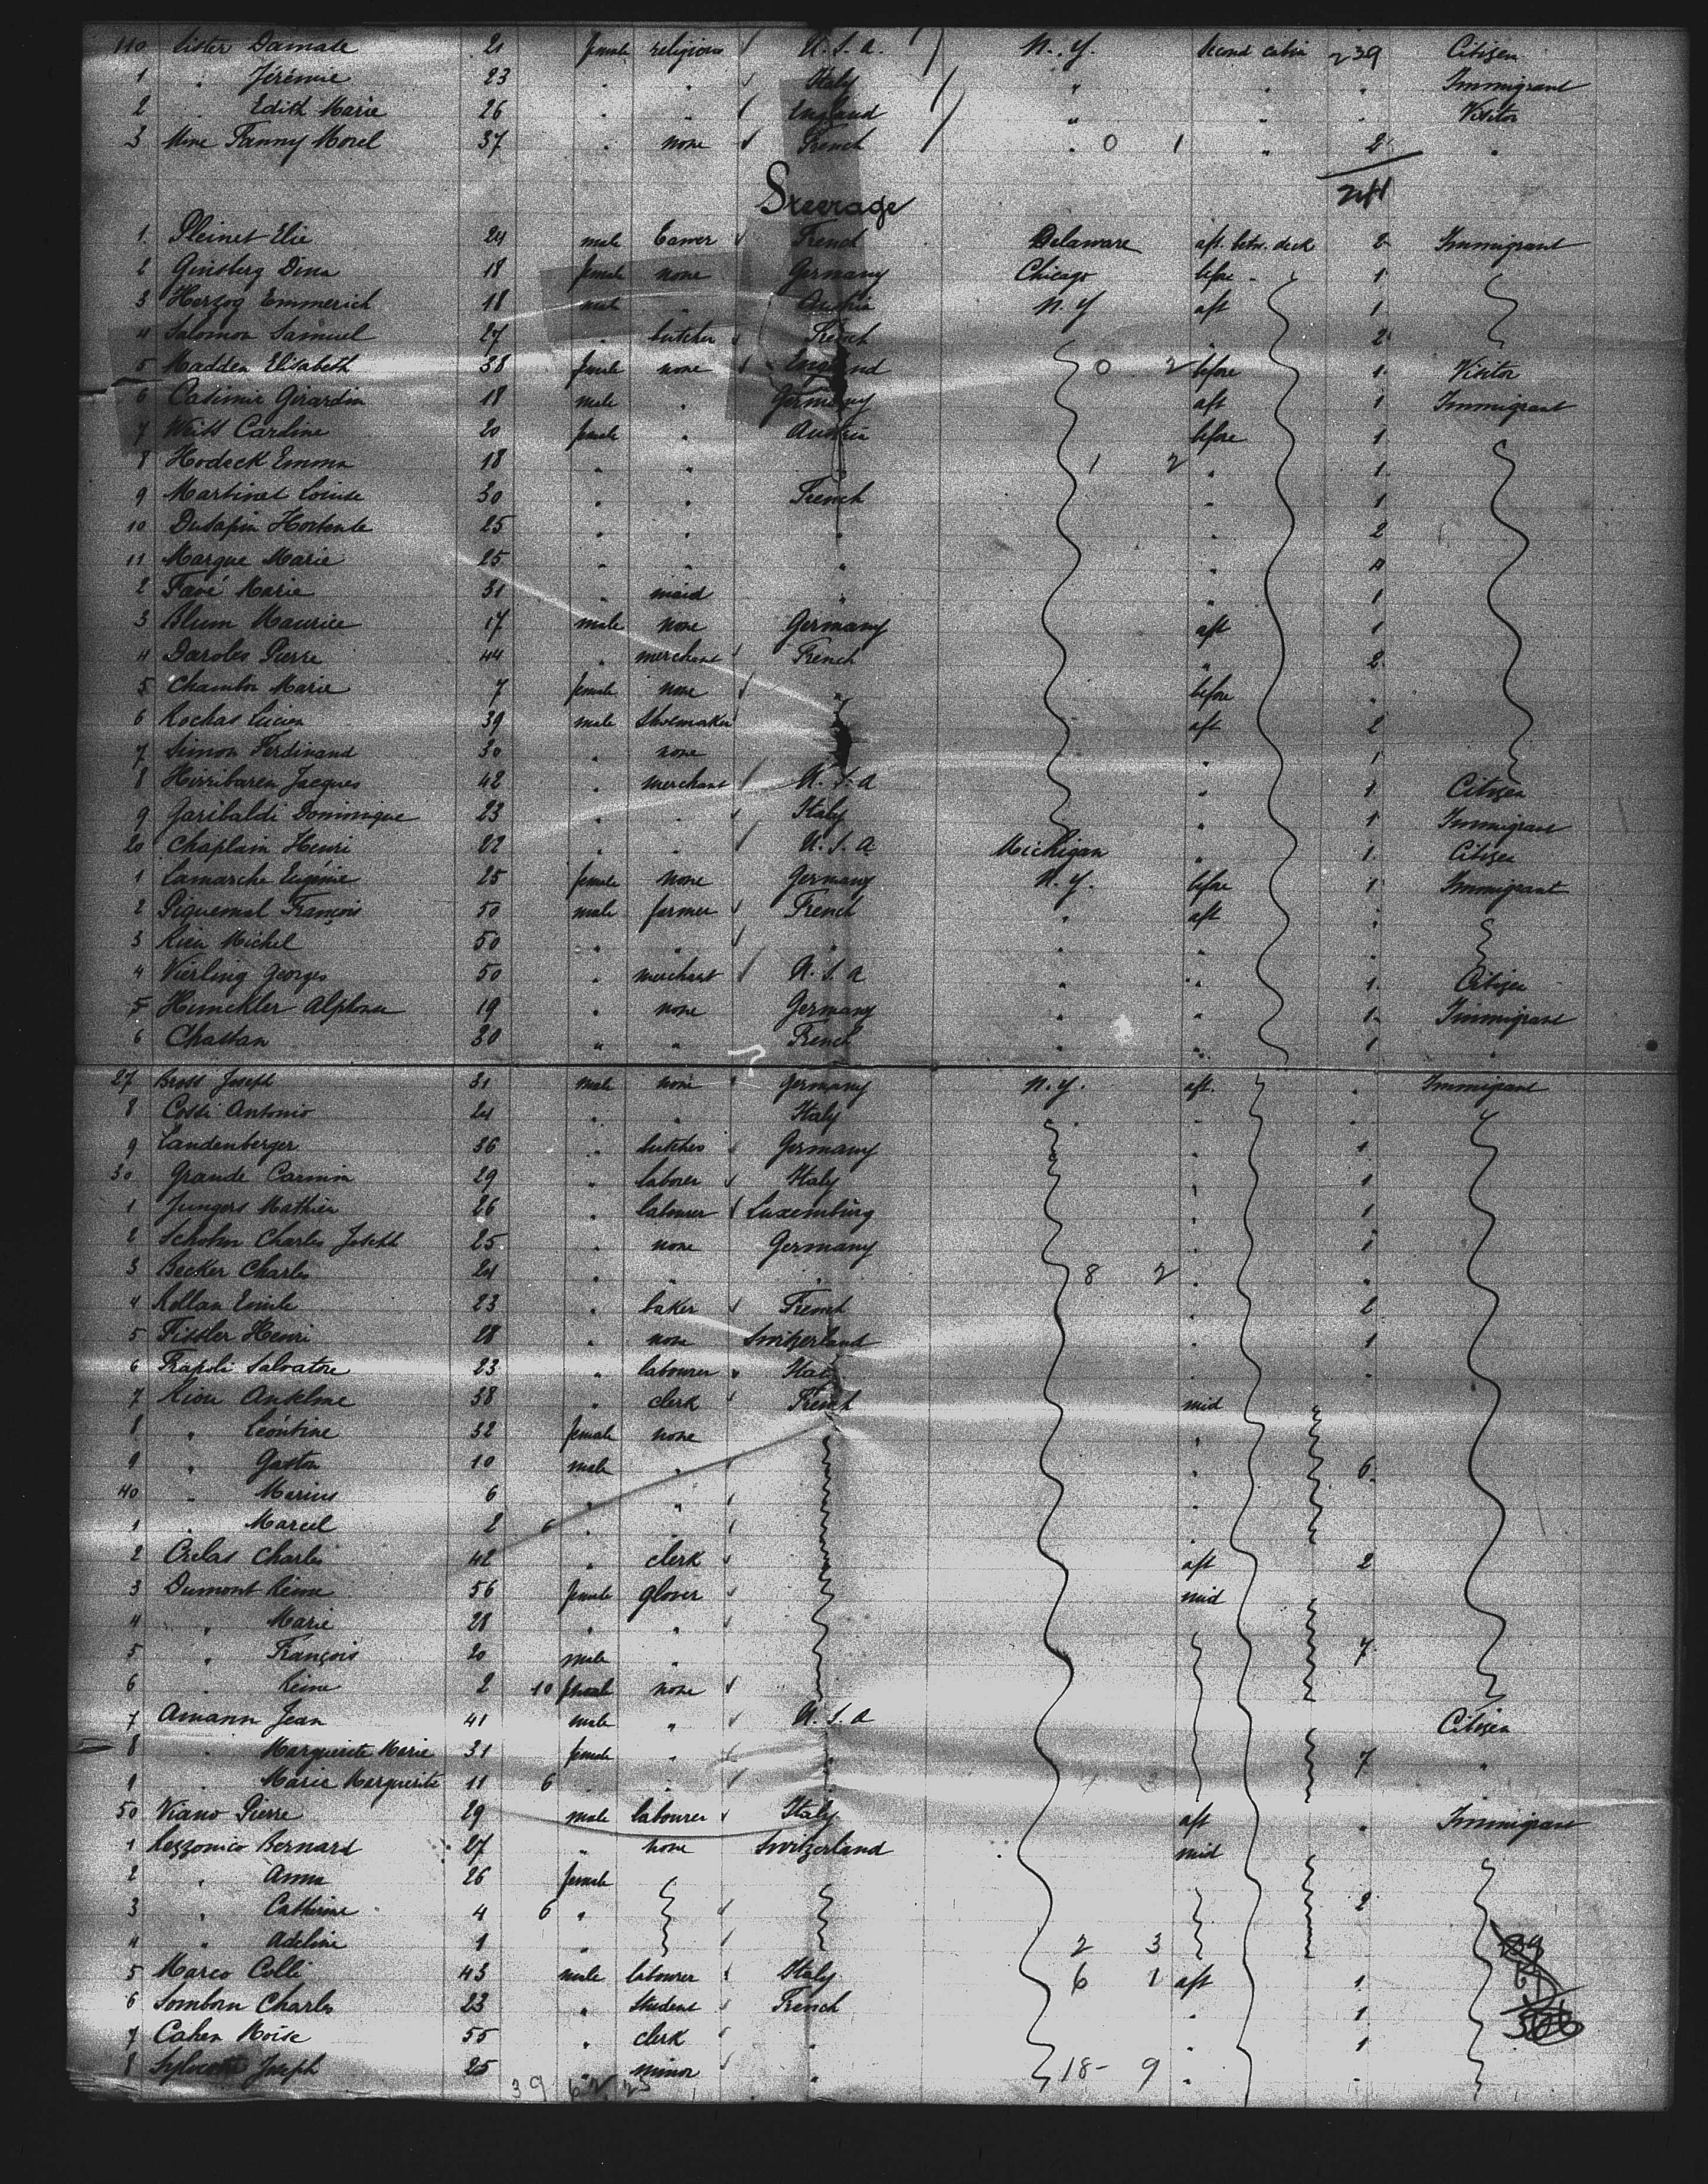 110 Sister Damase 21 female religious √ U.S.a. / N.Y. Second cabin 239 Citizen
1 " Jérémie 23 " " √ Italy / " " " Immigrant
2 " Edith Marie 26 " " √ England / " " " Visitor
3 Mme Fanny Morel 37 " none √ French / " 0 1 " 2 "
Steerage 241
1 Pleinet Elie 24 male √ French Delaware aft. betw. deck 2 Immigrant
2 Ginsberg Dina 18 female none Germany Chicago before " 1
3 Herzog Emmerich 18 male " Austria N.Y aft 1
4 Salomon Samuel 27 " butcher √ French " 2
5 Madden Elisabeth 38 female none √ England 0 2 before 1 Visitor
6 Casimir Girardin 18 male " Germany aft 1 Immigrant
7 Weiss Caroline 20 female " Austria before 1
8 Hodeck Emma 18 " " " 1 2 " 1
9 Martinet Louise 30 " " French " 1
10 Dusapin Hortense 25 " " " " 2
11 Marque Marie 25 " " " " 4
2 Favé Marie 31 " maid " " 1
3 Blum Maurice 17 male none Germany aft 1
4 Daroles Pierre 44 " merchant √ French " 2
5 Chambon Marie 7 female none √ " before "
6 Rochas Lucien 39 male Shoemaker aft 2
7 Simon Ferdinand 30 " none " 1
8 Hirribaren Jacques 42 " merchant √ U.S.a " 1 Citizen
9 Garibaldi Dominique 23 " " √ Italy " 1 Immigrant
20 Chaplain Henri 22 " " √ U.S.a Michigan " 1 Citizen
1 Lamarche Eugénie 25 female none Germany N.Y. before 1 Immigrant
2 Piquemal François 50 male farmer √ French " aft "
3 Rieu Michel 50 " " √ " " " "
4 Vierling Georges 50 " merchant √ U.S.a " " 1 Citizen
5 Hunckler Alphonse 19 " none Germany " " 1 Immigrant
6 Chattan 30 " " French " " 1 "
27 Bross Joseph 31 male none " Germany N.Y. aft. " Immigrant
8 Cossi Antonio 24 " " Italy " " "
9 Landenberger 36 " butcher √ Germany " 1
30 Grande Carmin 29 " laborer √ Italy " 1
1 Jungers Mathieu 26 " labourer √ Luxemburg " 1
2 Schohn Charles Joseph 25 " none Germany " 1
3 Becker Charles 24 " " " 8 2 " "
4 Rollan Emile 23 " baker √ French " 2
5 Fissler Henri 28 " none Switzerland " 1
6 Trapoli Salvatore 23 " labourer √ Italy " "
7 Riou Anselme 38 " clerk √ French mid
8 " Léontine 32 female none "
9 " Gaston 10 male " √ " 6
40 " Marius 6 " " √ "
1 " Marcel 2 6 " " √ "
2 Crelas Charles 42 " clerk √ aft 2
3 Dumont Reine 56 female glover √ mid
4 " Marie 28 " " √
5 " François 20 male " 7
6 " Reine 2 10 female none √
7 Amann Jean 41 male " √ U.S.a Citizen
8 " Marguerite Marie 31 female " √ " 7 "
9 " Marie Marguerite 11 6 " " √
50 Viano Pierre 29 male labourer √ Italy aft " Immigrant
1 Rezzonico Bernard 27 " none Switzerland mid
2 " Anna 26 female
3 " Catherine 4 6 " √ 2
4 " Adeline 1 " √ 2 3
5 Marco Colli 43 male labourer √ Italy 6 1 aft 1
6 Somborn Charles 23 " Student √ French " 1
7 Cahen Moïse 55 " clerk √ " " 1
8 Joseph 25 " minor √ " 18- 9 " "
39 62 25